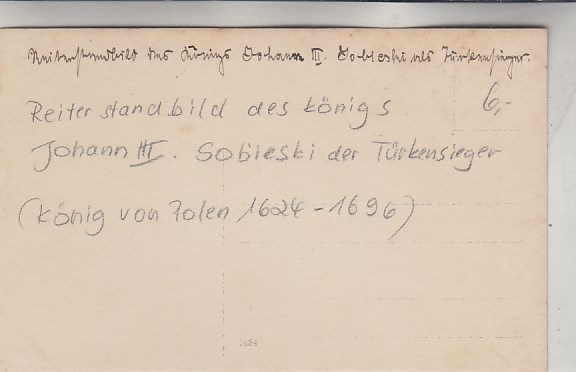 Reiterstandbild des Königs Johann III. Sobieski als Türkensieger.
Reiterstandbild des Königs 6,-
Johann III. Sobieski der Türkensieger
(König von Polen 1624-1696)